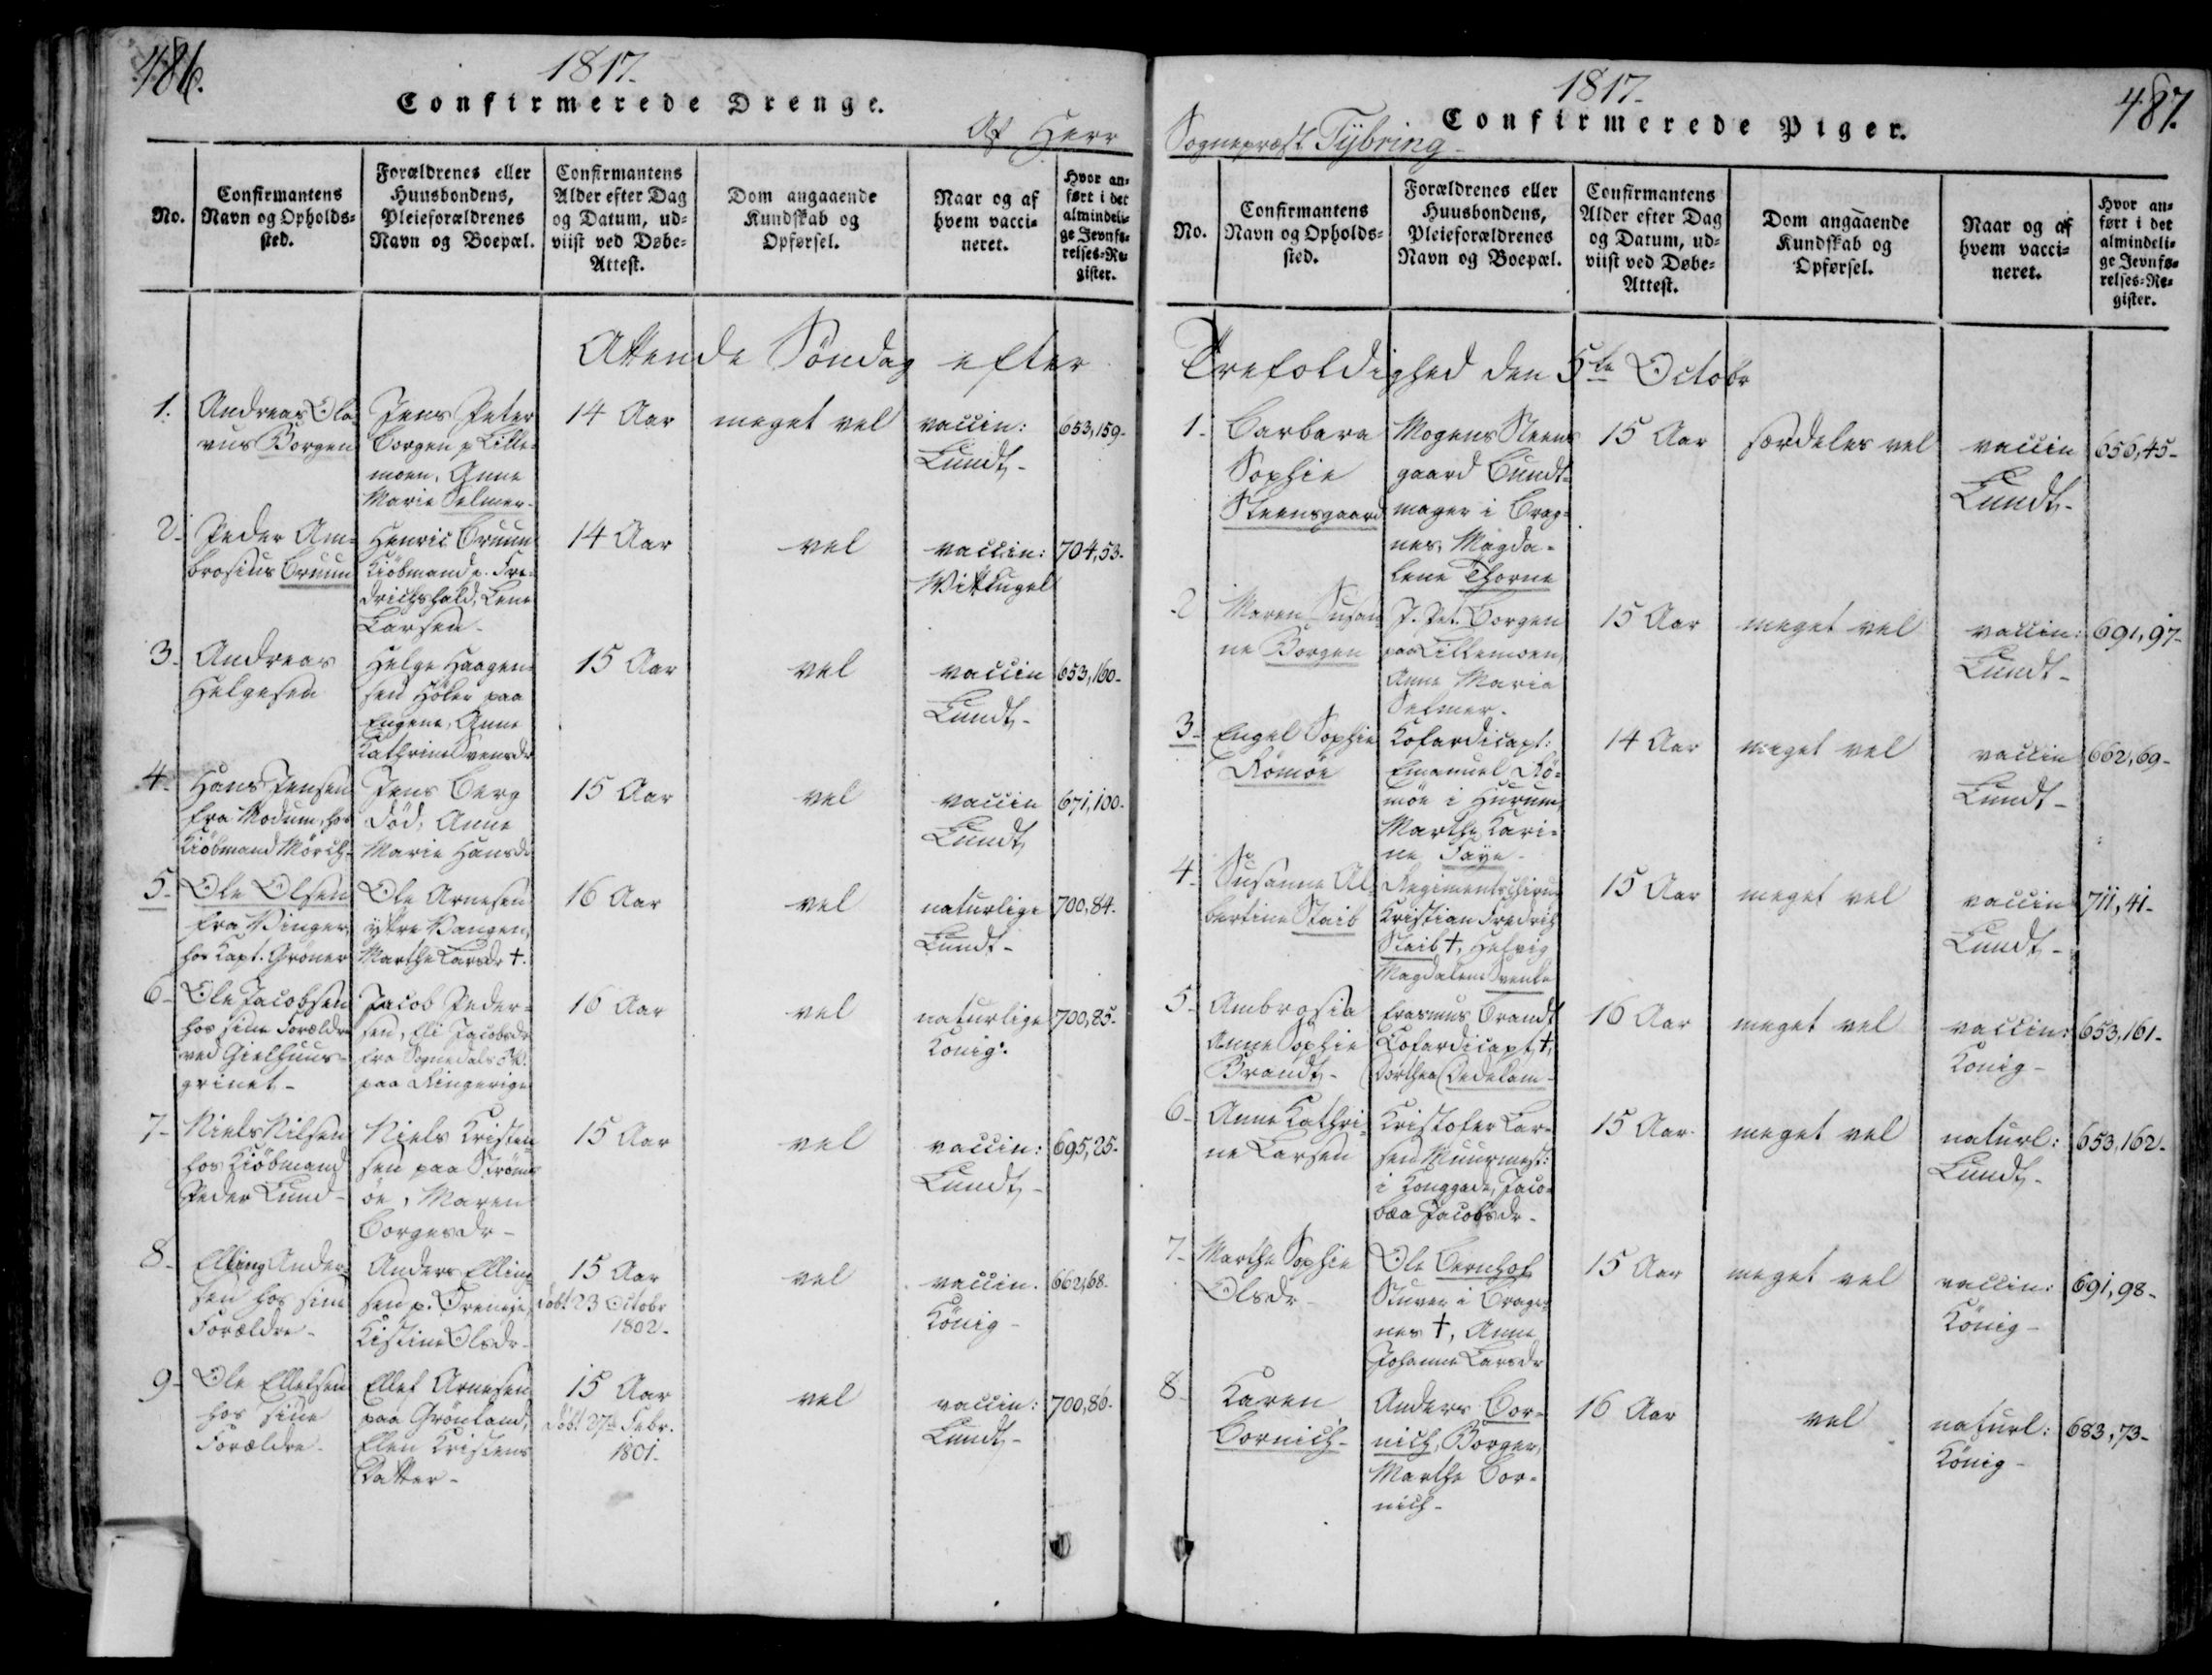 486.
1817.
Confirmerede Drenge.
Af Herr
No.
Confirmantens
Navn og Opholds=
sted.
Forældrenes eller
Huusbondens,
Pleieforældrenes
Navn og Boepæl.
Confirmantens
Alder efter Dag
og Datum, ud=
viist ved Døbe=
Attest.
Dom angaaende
Kundskab og
Opførsel.
Naar og af
hvem vacci=
neret.
Hvor an=
ført i det
almindeli=
ge Jevnfø=
relses=Re=
gister.
Attende Søndag efter
1.
Andreas Ola=
vus Borgen
Jens Peter
Borgen p Lille=
moen, Anne
Marie Selmer-
14 Aar
meget vel
vaccin:
Lundt-
653,159-
2-
Peder Am=
brosius Bruun
Henric Bruun
Kiöbmand p. Fre=
drichshald, Lene
Larsen-
14 Aar
vel
vaccin:
Wittugel
704,53-
3-
Andreas
Helgesen
Helge Haagen=
sen Höker paa
Engene, Anne
Kathrine Svensdr
15 Aar
vel
vaccin
Lundt-
653,160-
4-
Hans Jensen
fra Modum, hos
Kiöbmand Mörch-
Jens Berg
död, Anne
Marie Hansdr
15 Aar
vel
vaccin
Lundt
671,100-
5-
Ole Olsen
fra Vinger,
hos Kapt. Gröner
Ole Arnesen
ytre Vangen,
Marthe Larsdr †.
16 Aar
vel
naturlige
Lundt-
700,84-
6-
Ole Jacobsen
hos sine Forældre
ved Gielhuus=
grinet-
Jacob Peder=
sen, Eli Jacobsdr
fra Sognedals
paa Ringerige
16 Aar
vel
naturlige
König.
700,85-
7-
Niels Nilsen
hos Kiöbmand
Peder Lund-
Niels Kristen=
sen paa Ström=
öe, Maren
Borgesdr-
15 Aar
vel
vaccin:
Lundt-
695,25-
8-
Elling Ander=
sen hos sine
Forældre-
Anders Elling=
sen p. Öreneie,
Kistine Olsdr-
15 Aar
döbt 23 Octobr
1802-
vel
vaccin.
König-
662,68-
9-
Ole Ellefsen
hos sine
Forældre-
Ellef Arnesen
paa Grönland,
Elen Kristens
Datter-
15 Aar
döbt 27de Febr.
1801-
vel
vaccin:
Lundt-
700,86-
487.
1817-
Confirmerede Piger.
Sognepræst Tybring-
No.
Confirmantens
Navn og Opholds=
sted.
Forældrenes eller
Huusbondens,
Pleieforældrenes
Navn og Boepæl.
Confirmantens
Alder efter Dag
og Datum, ud=
viist ved Døbe=
Attest.
Dom angaaende
Kundskab og
Opførsel.
Naar og af
hvem vacci=
neret.
Hvor an=
ført i det
almindeli=
ge Jevnfø=
relses=Re=
gister.
Trefoldighed den 5te Octobr
1-
Barbara
Sophie
Steensgaard
Mogens Steens
gaard Bundt=
mager i Brag=
nes, Magda=
lene Thorne
15 Aar
særdeles vel
vaccin
Lundt-
656,45-
2
Maren Susan
ne Borgen
J. Pet. Borgen
paa Lillemoen,
Anne Maria
Selmer-
15 Aar
meget vel
vaccin:
Lundt-
691,97-
3-
Engel Sophie
Römöe
Kofardicapt:
Emanuel Rö=
möe i Hurum,
Marthe Kari=
ne Faye-
14 Aar
meget vel
vaccin
Lundt-
662,69-
4-
Susanne Al
bertine Staib
Regimentschirurg
Kristian Fredrich
Staib †, Helvig
Magdalene Svenke
15 Aar
meget vel
vaccin
Lundt-
711,41-
5-
Ambrosia
Anne Sophie
Brandt-
Erasmus Brandt
Cofardicapt †,
Dorthea Dedekam-
16 Aar
meget vel
vaccin:
König-
653,161-
6-
Anne Kathri=
ne Larsen
Kristofer Lar=
sen Muurmest:
i Konggade, Jaco=
bæa Jacobsdr-
15 Aar-
meget vel
naturl:
Lundt-
653,162-
7-
Marthe Sophie
Olsdr-
Ole Bernhof
Stuver i Brage=
nes †, Anne
Johanne Larsdr
15 Aar
meget vel
vaccin:
König-
691,98-
8-
Karen
Bornich-
Anders Bor=
nich, Borger,
Marthe Bor=
nich-
16 Aar
vel
naturl:
König-
683,73-